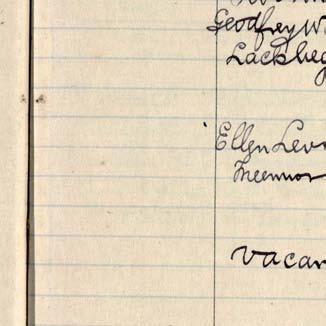 Geodfrey W
Lackbeg
Ellen Lev
Freemnor
Vacan